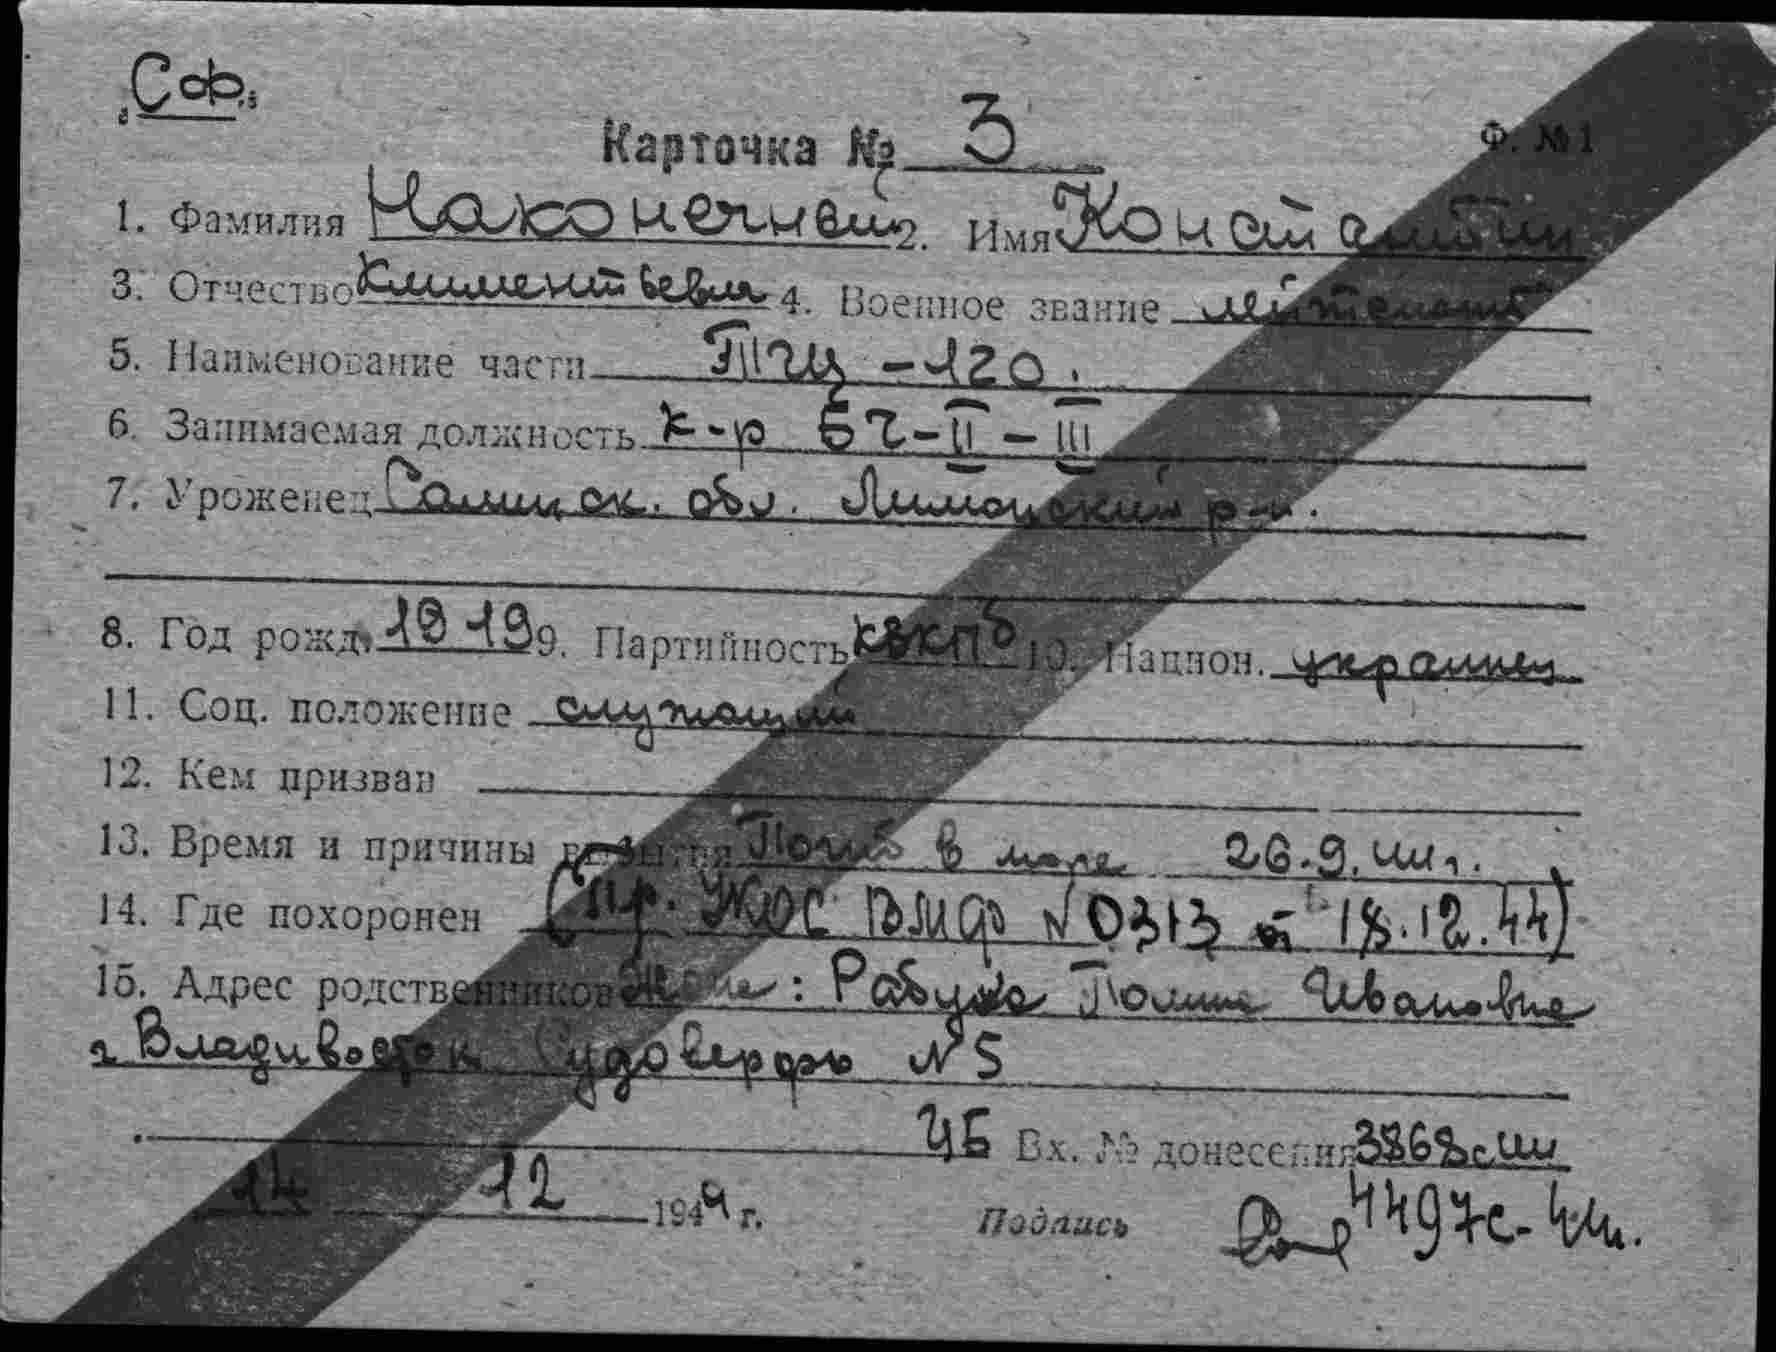 Сф.
Карточка № 3
Ф. №1
1. Фамилия Наконечный 2. Имя Константин
3. Отчество Климентьевич 4. Военное звание лейтенант
5. Наименование части ТЩ -120.
6. Занимаемая должность к-р БЧ-II-III
7. Уроженец ск. обл. р-н.
8. Год рожд. 1919 9. Партийность КВКПб 10. Национ. украинец
11. Соц. положение служащий
12. Кем призван
13. Время и причины выбытия Погиб в море 26.9.44г.
14. Где похоронен (Пр. УКОС ВМФ N 0313 от 18.12.44)
15. Адрес родственников Жена: Полина Ивановна
г Владивосток Судоверфь N 5
ЦБ Вх. № донесения 3868с 44
14 12 1944 г. Подпись 4497с-44г.